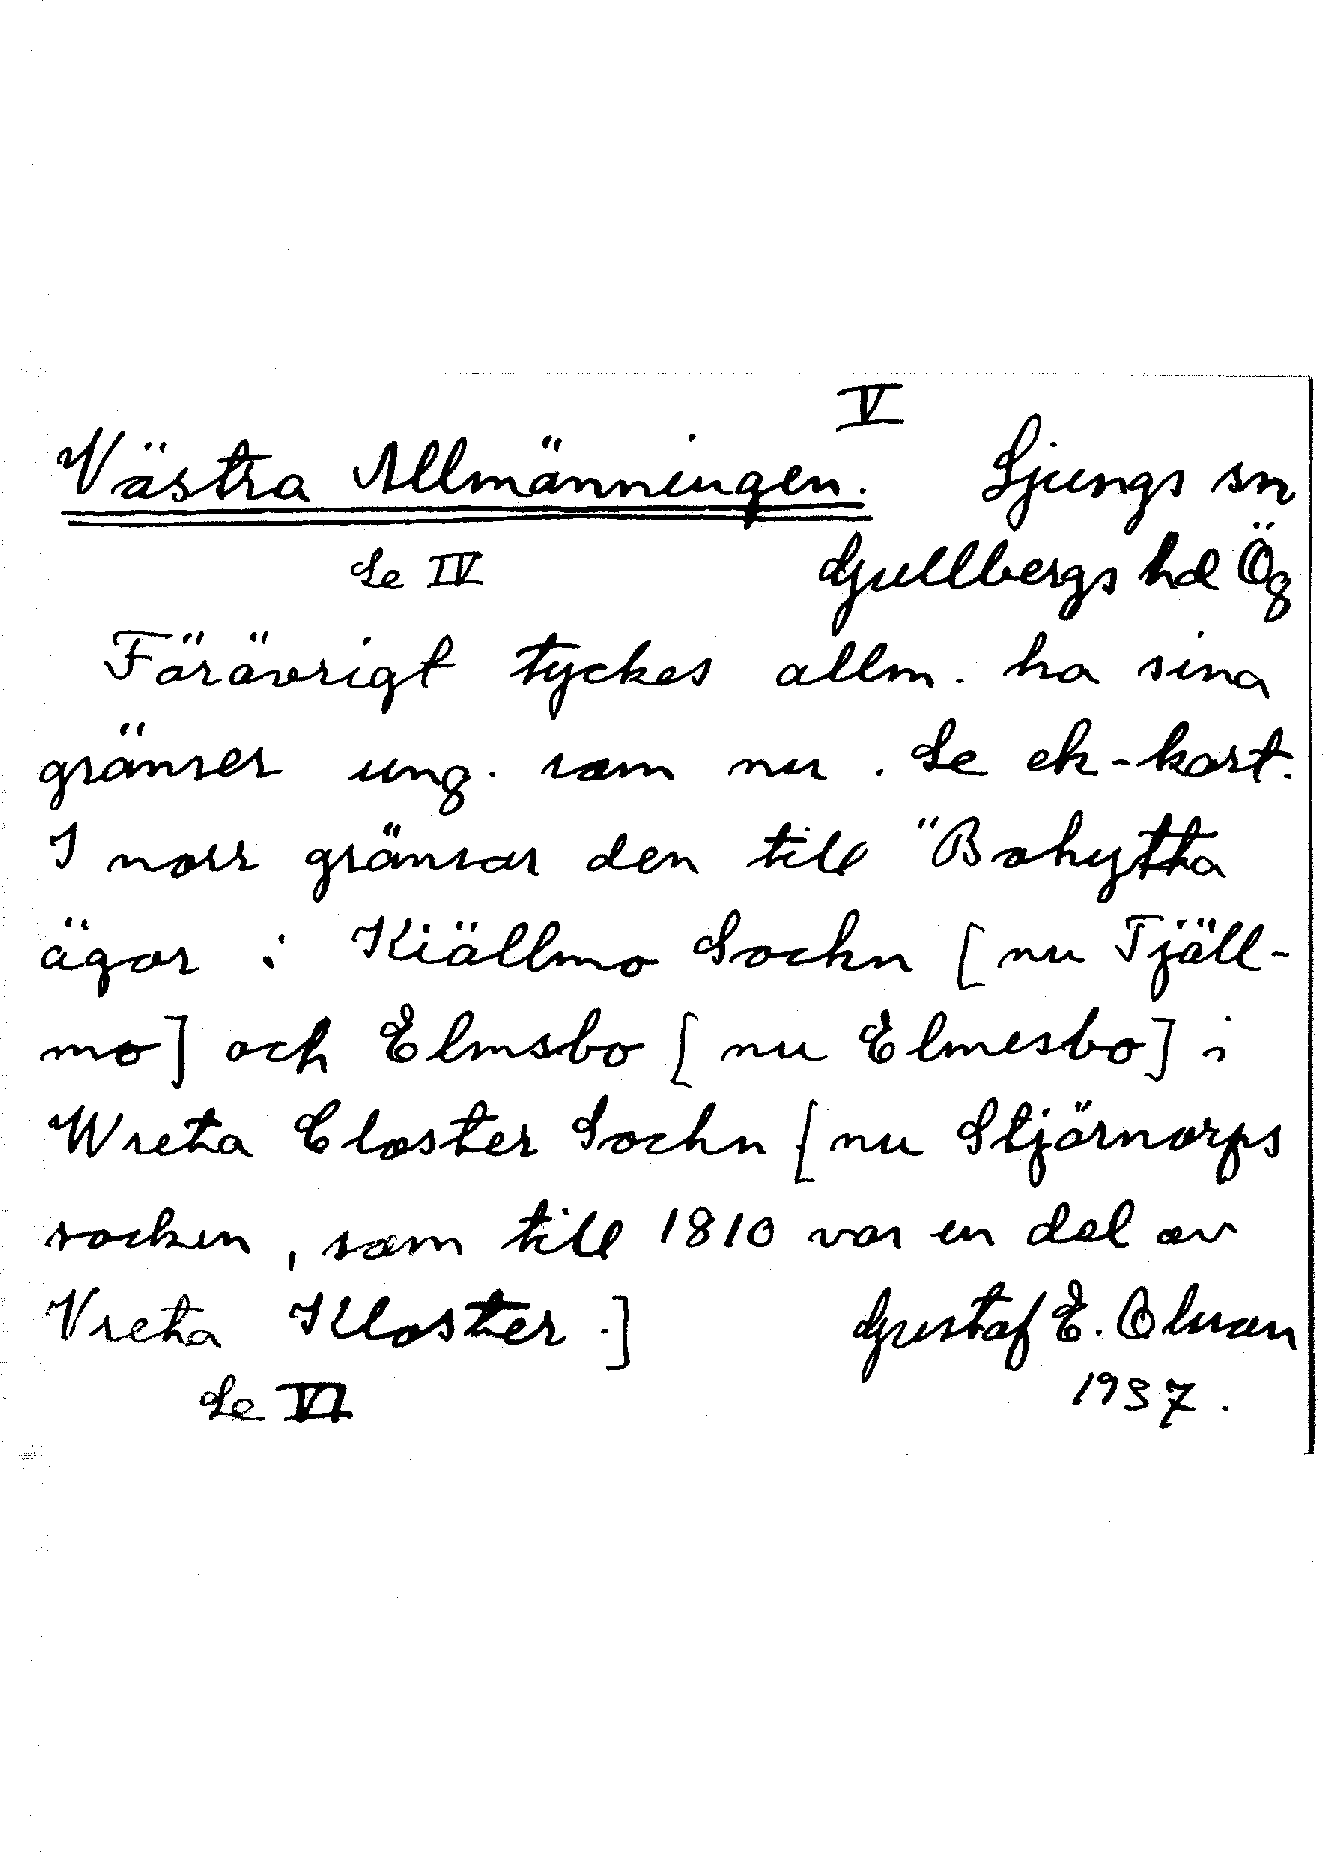 V
Västra Allmänningen. Ljungs sn
Se IV Gullbergs hd Ög
Förövrigt tyckes allm. ha sina
gränser ung. som nu. Se ek-kart.
I norr gränsar den till "Bohytta
ägor i Kiällmo Sockn [nu Tjäll-
mo] och Elmsbo [nu Elmesbo] i
Wreta Closter Sockn [nu Stjärnorps
socken, som till 1810 var en del av
Vreta Kloster.] Gustaf E. Olsson
Se VI 1937.